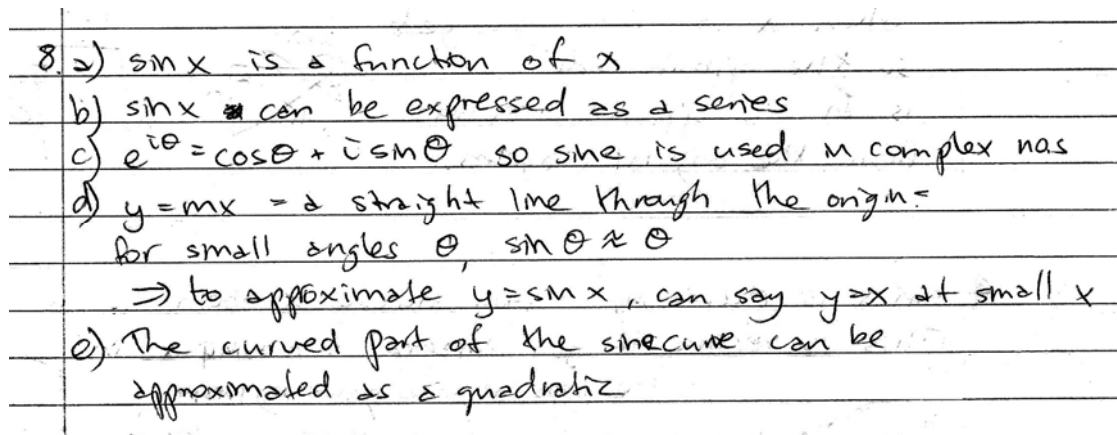 8. a) sin x is a function of x
b) sin x can be expressed as a series
c) e^iθ = cosθ + i sinθ so sine is used in complex nos
d) y = mx = a straight line through the origin =
for small angles θ, sin θ ≈ θ
⇒ to approximate y = sin x, can say y=x at small x
e) The curved part of the sine curve can be
approximated as a quadratic